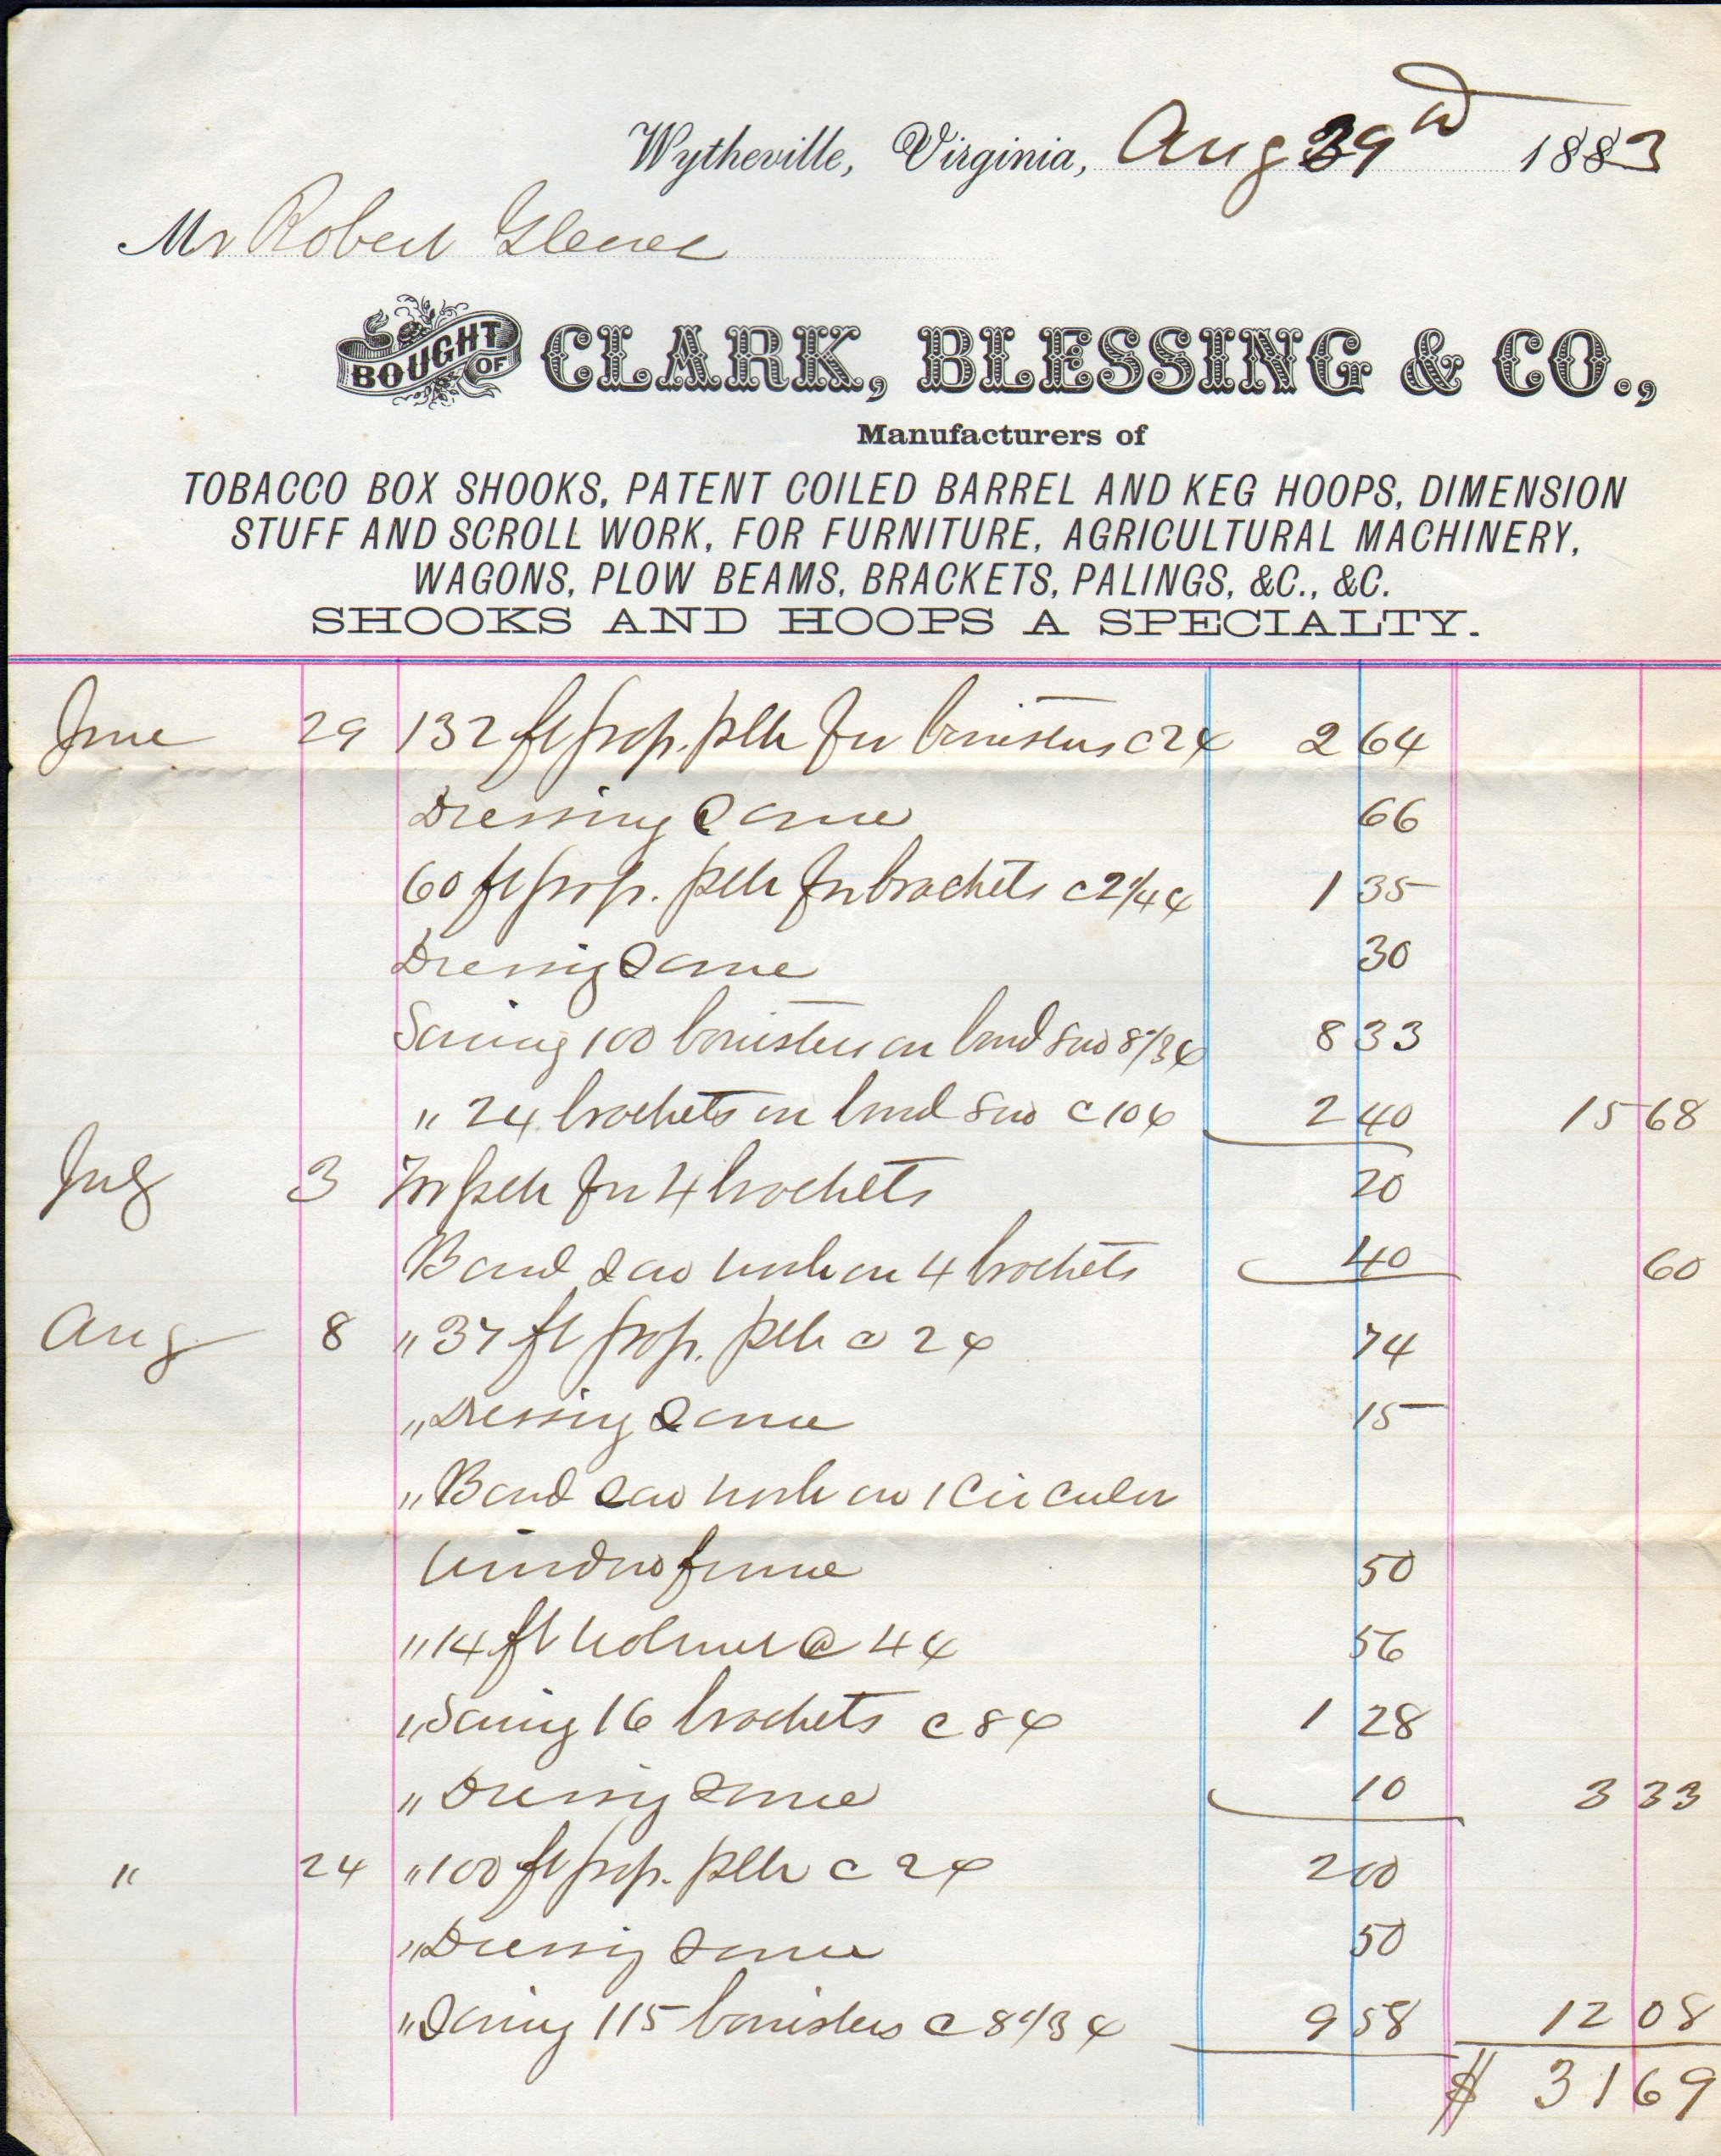 Wytheville, Virginia, Aug 29 1883
Mr Robert
BOUGHT OF CLARK, BLESSING & CO.,
Manufacturers of
TOBACCO BOX SHOOKS, PATENT COILED BARREL AND KEG HOOPS, DIMENSION
STUFF AND SCROLL WORK, FOR FURNITURE, AGRICULTURAL MACHINERY,
WAGONS, PLOW BEAMS, BRACKETS, PALINGS, &C., &C.
SHOOKS AND HOOPS A SPECIALTY.
June 29 132 ft pop. plk for banisters @ 2¢ 2 64
Dressing Same 66
60 ft pop. plk for brackets @ 2 1/4 ¢ 1 35
Dressing Same 30
Sawing 100 banisters on band saw 8 1/3 ¢ 8 33
" 24 brackets on band saw @ 10¢ 2 40 15 68
July 3 For plk for 4 brackets 20
Band saw work on 4 brackets 40 60
Aug 8 " 37 ft pop. plk @ 2¢ 74
" Dressing Same 15
" Band saw work on 1 Circular
window frame 50
" 14 ft walnut @ 4¢ 56
" Sawing 16 brackets @ 8¢ 1 28
" Dressing Same 10 3 33
" 24 " 100 ft pop. plk @ 2¢ 2 00
" Dressing Same 50
" Sawing 115 banisters @ 8 1/3 ¢ 9 58 12 08
$ 31 69